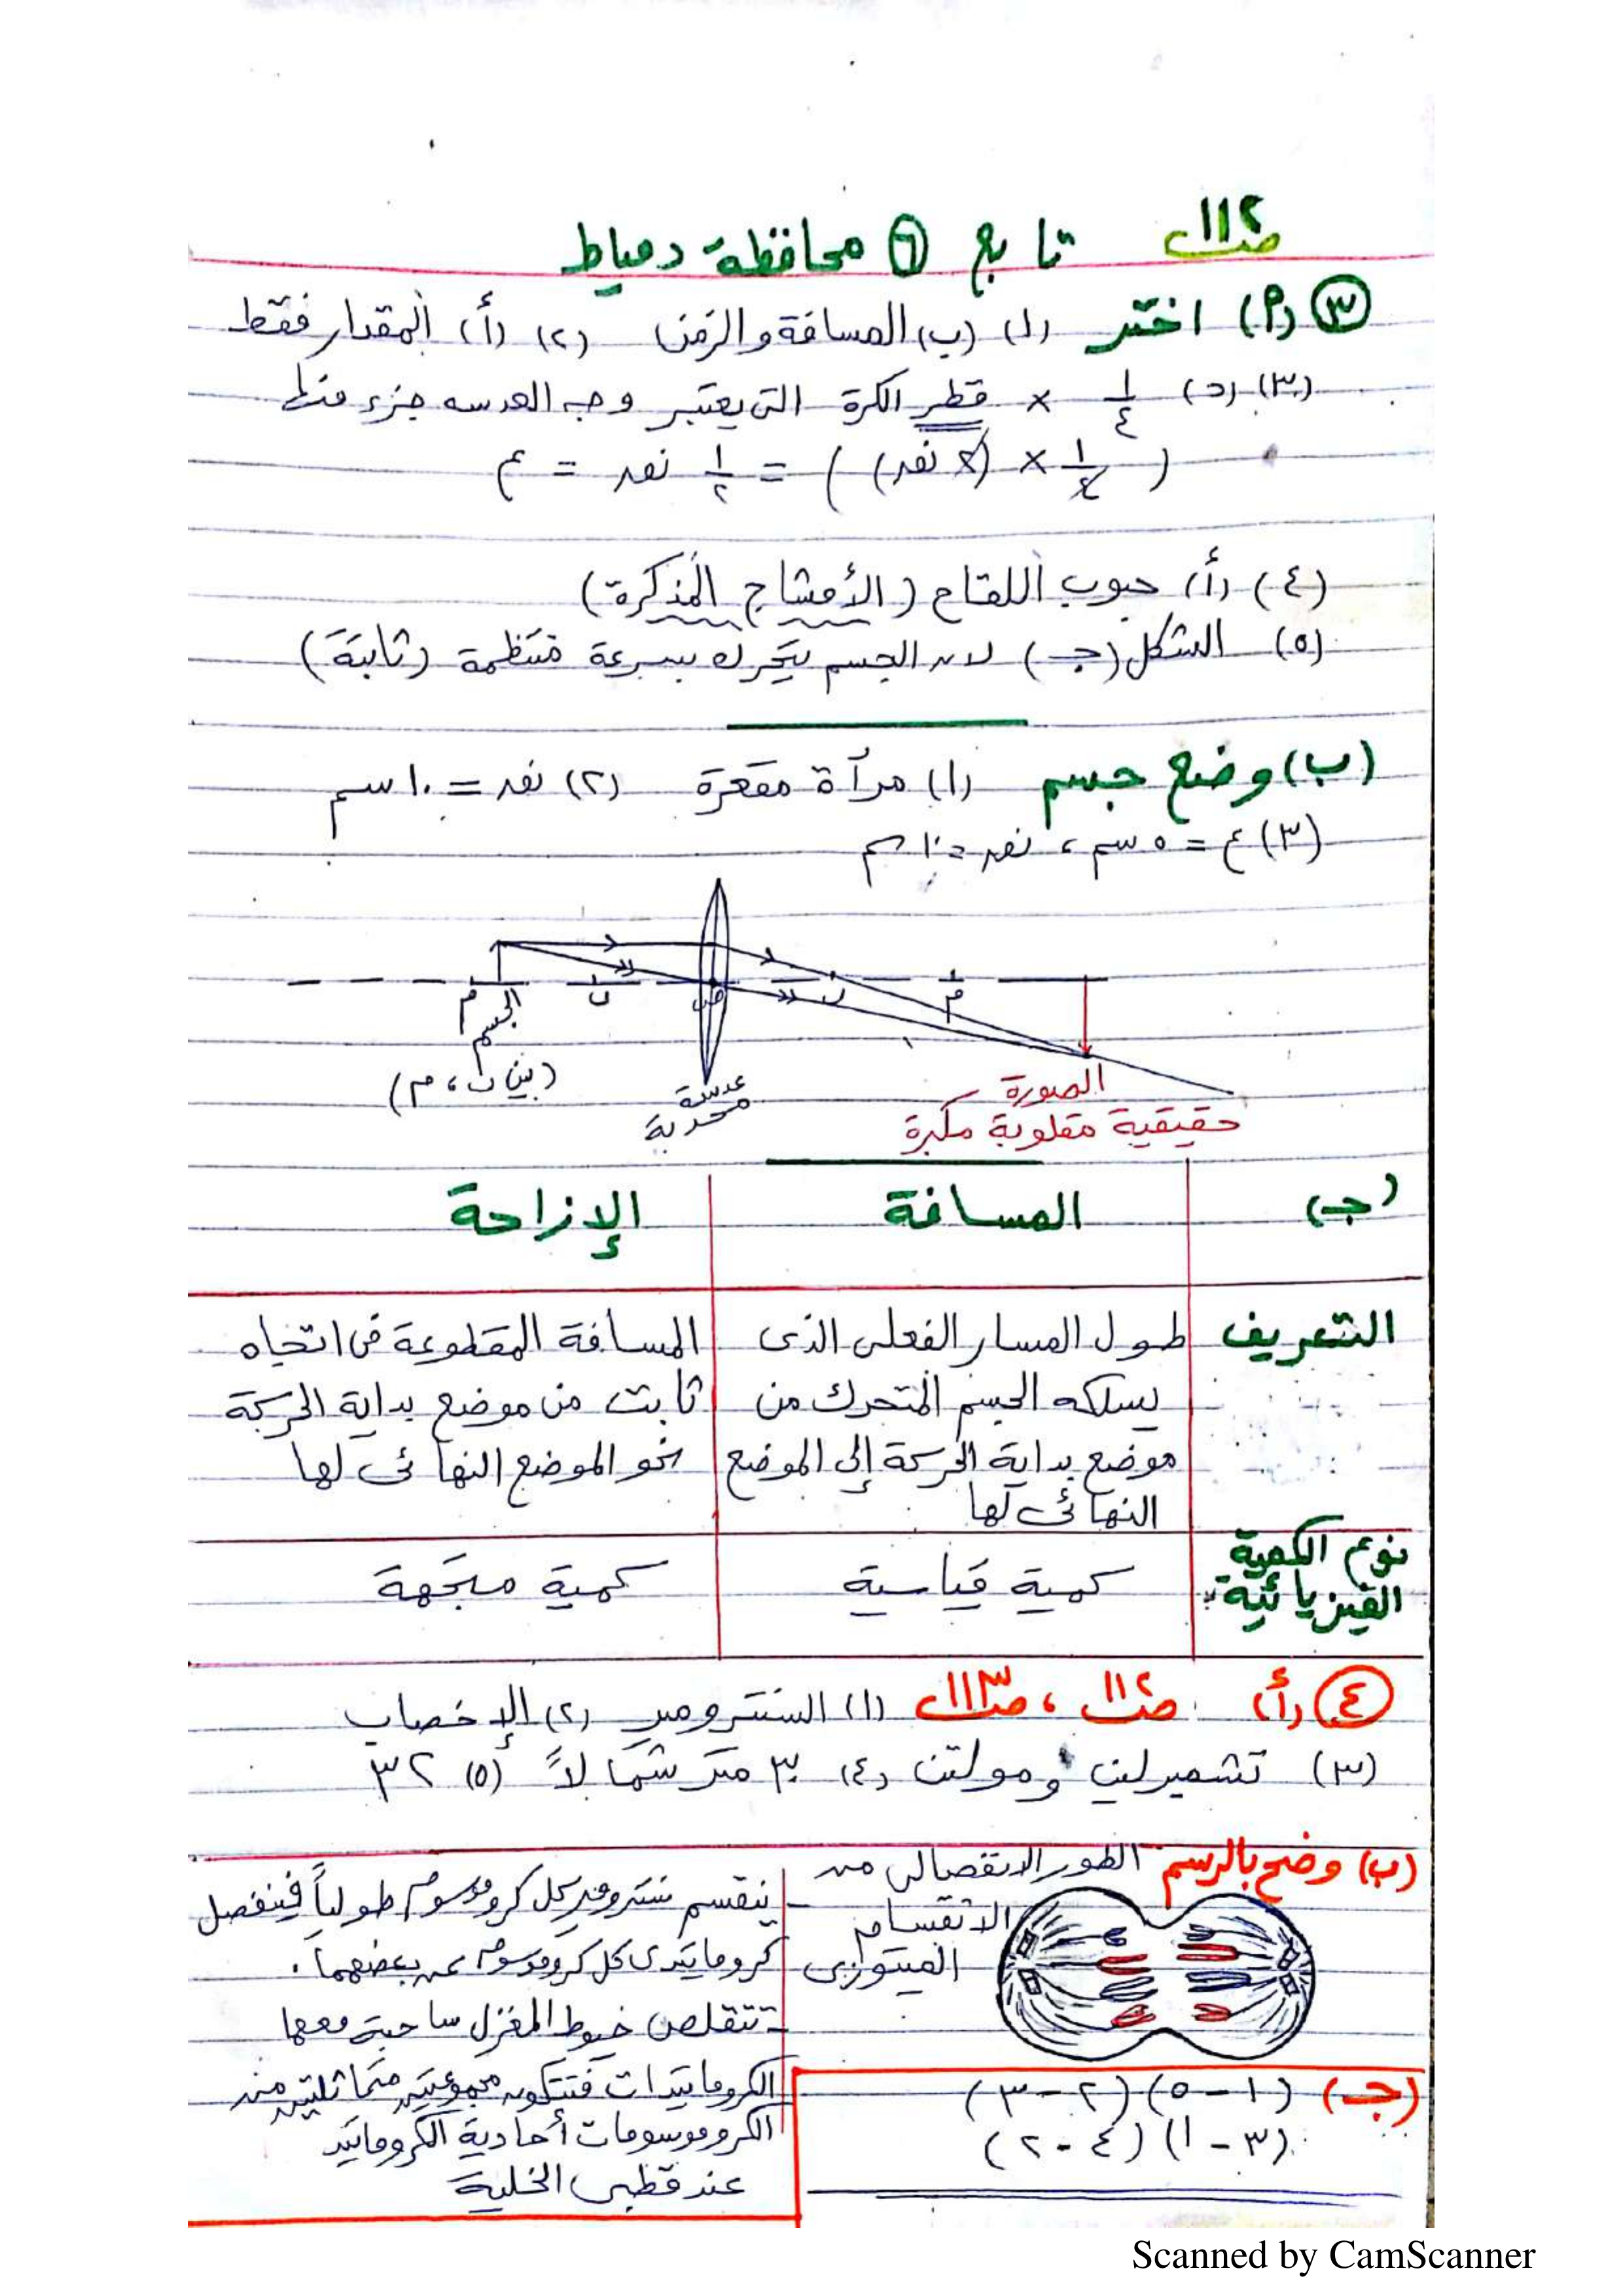 صـ١١٢ تابع ٦ محافظة دمياط
٣ (أ) اختر (١) (ب) المسافة والزمن (٢) (أ) المقدار فقط
(٣) (د) ١/٤ × قطر الكرة التى يعتبر وجه العدسه جزء منها
(١/٤ × (٢ نق)) = ١/٢ نق = ع
(٤) (أ) حبوب اللقاح (الأمشاج المذكرة)
(٥) الشكل (جـ) لان الجسم يتحرك بسرعة منتظمة (ثابتة)
(ب) وضع جسم (١) مرآة مقعرة (٢) نق = ١٠ سم
(٣) ع = ٥ سم ، نق = ١٠ سم
م الجسم ن ن م
(بين ن ، م)
عدسة محدبة
الصورة
حقيقية مقلوبة مكبرة
(جـ) المسافة الإزاحة
التعريف طول المسار الفعلى الذى المسافة المقطوعة فى اتجاه
يسلكه الجسم المتحرك من ثابت من موضع بداية الحركة
موضع بداية الحركة إلى الموضع نحو الموضع النهائى لها
النهائى لها
نوع الكمية
الفيزيائية كمية قياسية كمية متجهة
٤ (أ) صـ١١٢ ، صـ١١٣ (١) السنترومير (٢) الإخصاب
(٣) تشمبرلين ومولتن (٤) ٣٠ متر شمالاً (٥) ٣٢
(ب) وضح بالرسم الطور الانفصالى من
الانقسام
الميتوزى
- ينقسم سنترومير كل كروموسوم طولياً فينفصل
كروماتيدى كل كروموسوم عن بعضهما .
- تتقلص خيوط المغزل ساحبة معها
الكروماتيدات فتتكون مجموعتين متماثلتين من
الكروموسومات أحادية الكروماتيد
عند قطبى الخلية
(جـ) (١ - ٥) (٢ - ٣)
(٣ - ١) (٤ - ٢)
Scanned by CamScanner